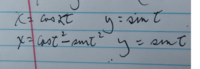 x = cos2t y = sint
x = cost² − sint² y = sint